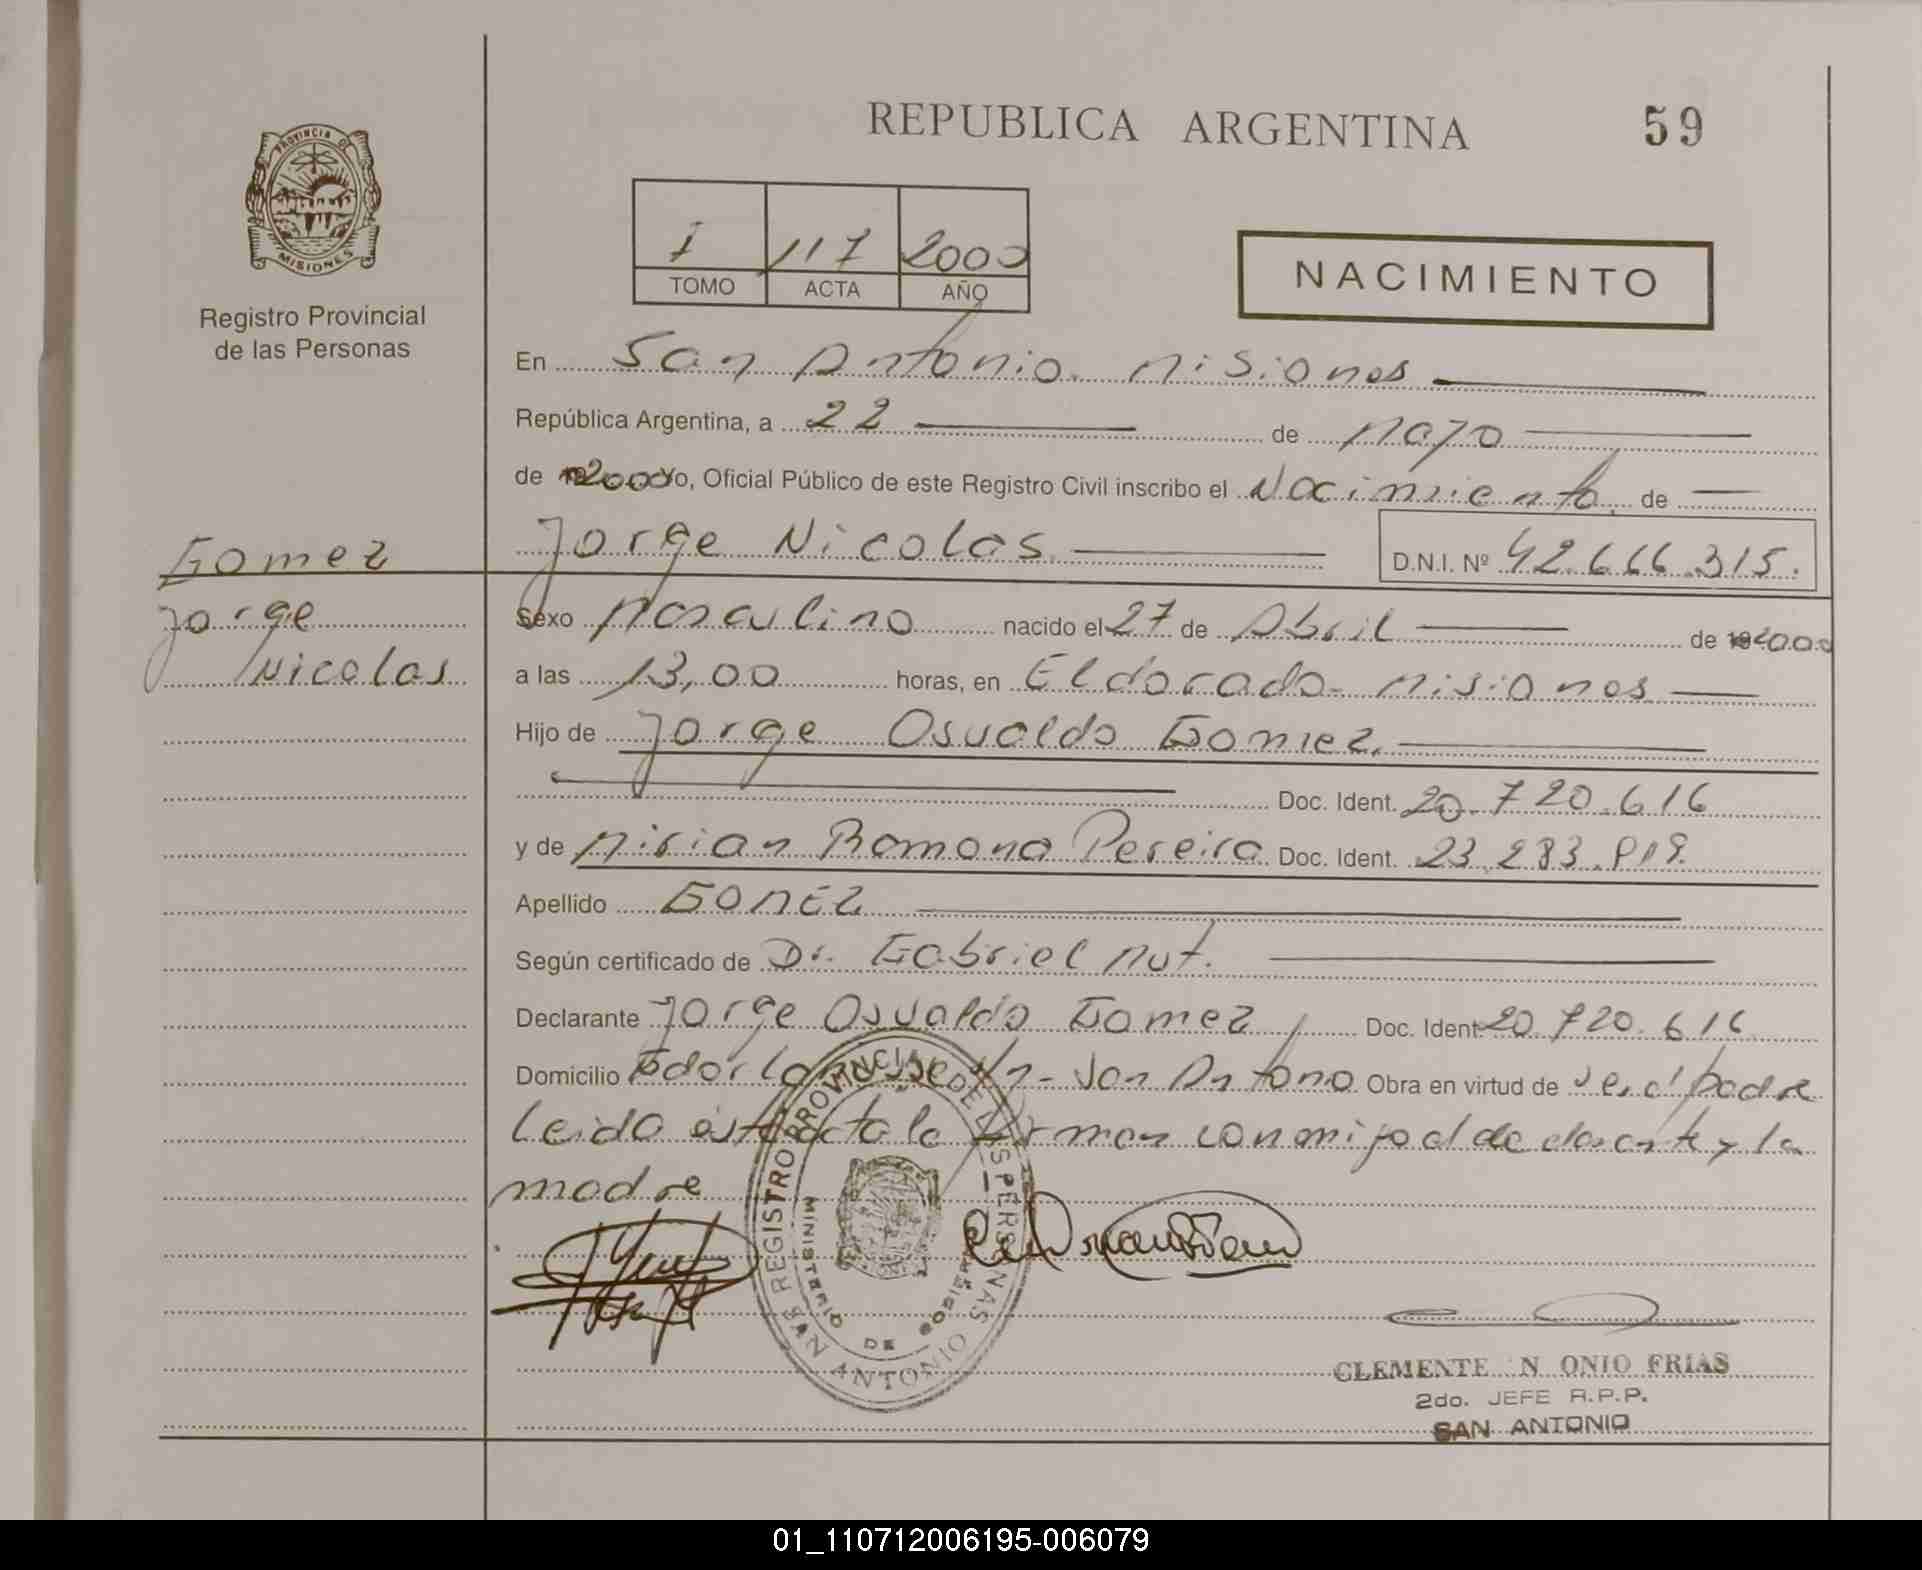 REPUBLICA ARGENTINA
59
PROVINCIA DE
MISIONES
Registro Provincial
de las Personas
I 117 2000
TOMO ACTA AÑO
NACIMIENTO
En San Antonio. Misiones
República Argentina, a 22 de Mayo
de 2000 Yo, Oficial Público de este Registro Civil inscribo el Nacimiento de
Gomez
Jorge Nicolas
Jorge Nicolas. D.N.I. Nº 42.666.315.
Sexo Masculino nacido el 27 de Abril de 2000
a las 13,00 horas, en Eldorado- Misiones
Hijo de Jorge Osvaldo Gomez.
Doc. Ident. 20.720.616
y de Mirian Ramona Pereira Doc. Ident. 23.283.
Apellido Gomez
Según certificado de Dr. Gabriel
Declarante Jorge Osvaldo Gomez Doc. Ident. 20.720.616
Domicilio S/n - San Antonio Obra en virtud de ser el padre
Leida esta acta la firman conmigo el declarante y la
madre
REGISTRO PROVINCIAL DE LAS PERSONAS
MINISTERIO DE GOBIERNO
SAN ANTONIO
CLEMENTE N ONIO FRIAS
2do. JEFE R.P.P.
SAN ANTONIO
01_110712006195-006079